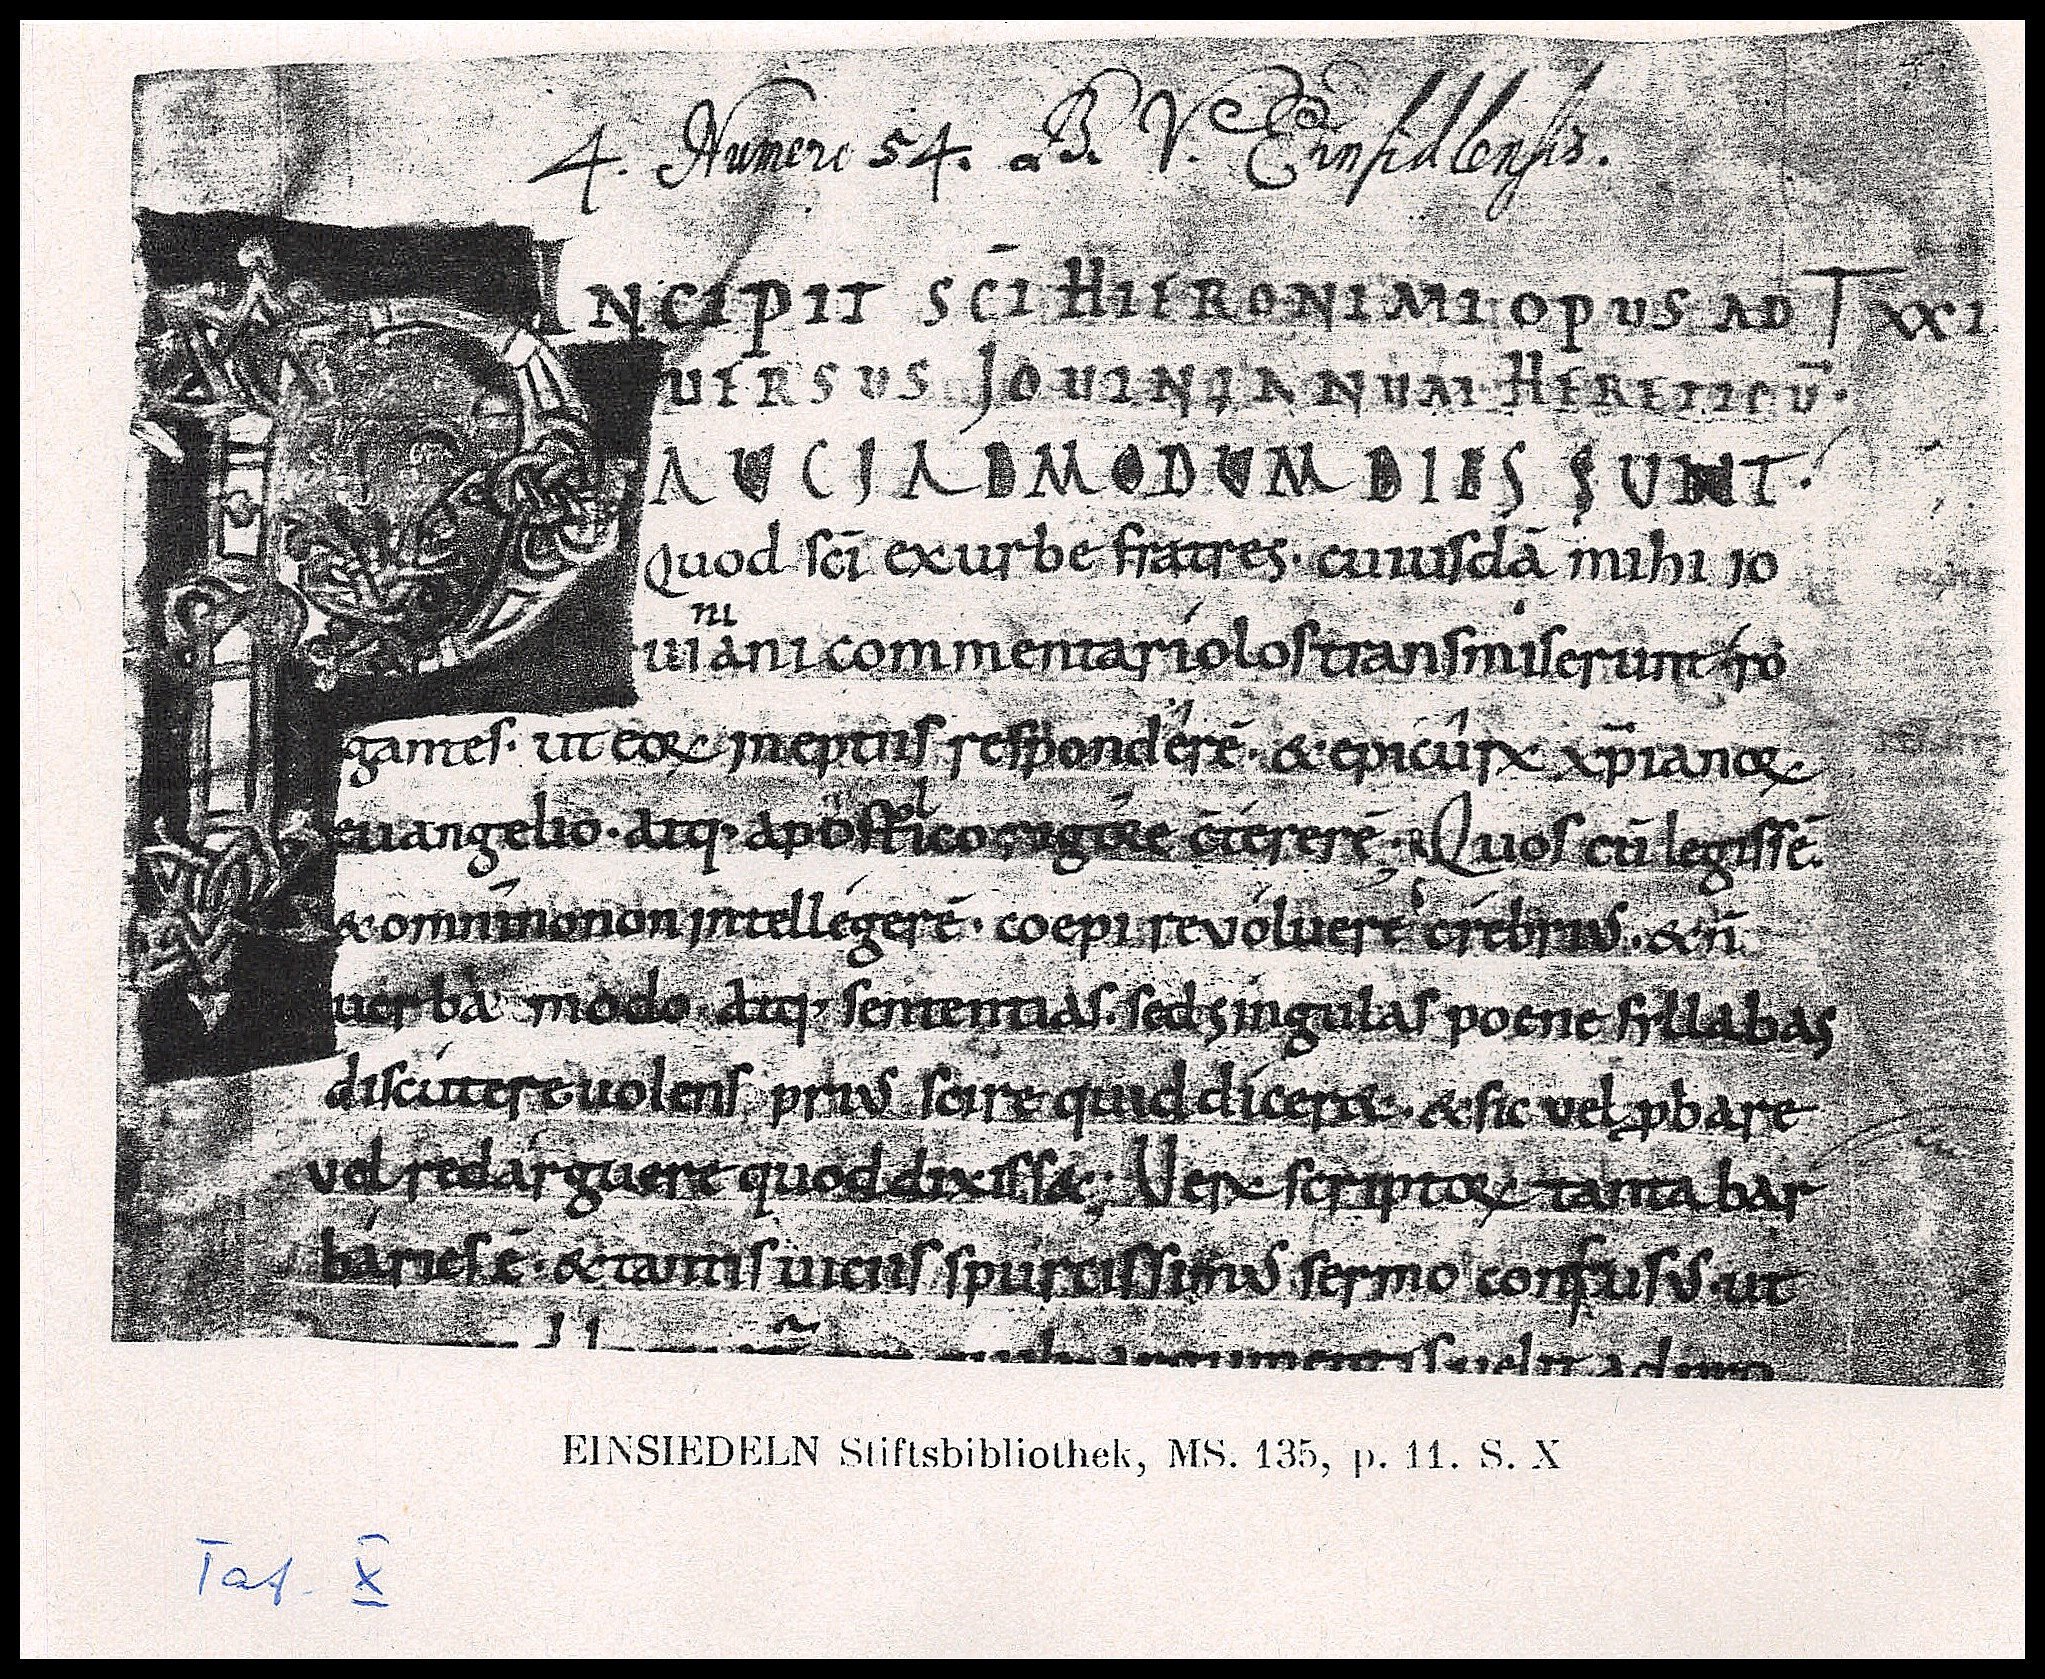 4. Numero 54. B. V. Einsidlensis.
INCIPIT SCĪ HIERONIMI OPUS AD T XXI
UERSUS JOUINIANUM HERETICŪ·
AUCI ADMODUM DIES SUNT·
Quod sc̄i ex urbe fratres· cuiusdā mihi io
ni
uiani commentariolos transmiserunt ro
gantes· ut eoꝝ ineptiis responderē· & epicurū xp̄ianoꝝ
euangelio· atq· apostolico uigore c̄tererē· Quos cū legissē·
& omnino non intellegerē· coepi reuoluere crebrius· & n̄
uerba modo· atq· sententias· sed singulas poene syllabas
discutere uolens prius scire quid diceret· & sic vel ꝓbare
vel redarguere quod dixiss&· Verū scriptoꝝ tanta bar
baries ē· & tantis uiciis spurcissimus sermo confusus· ut
argumentis uelit
EINSIEDELN Stiftsbibliothek, MS. 135, p. 11. S. X
Taf. X